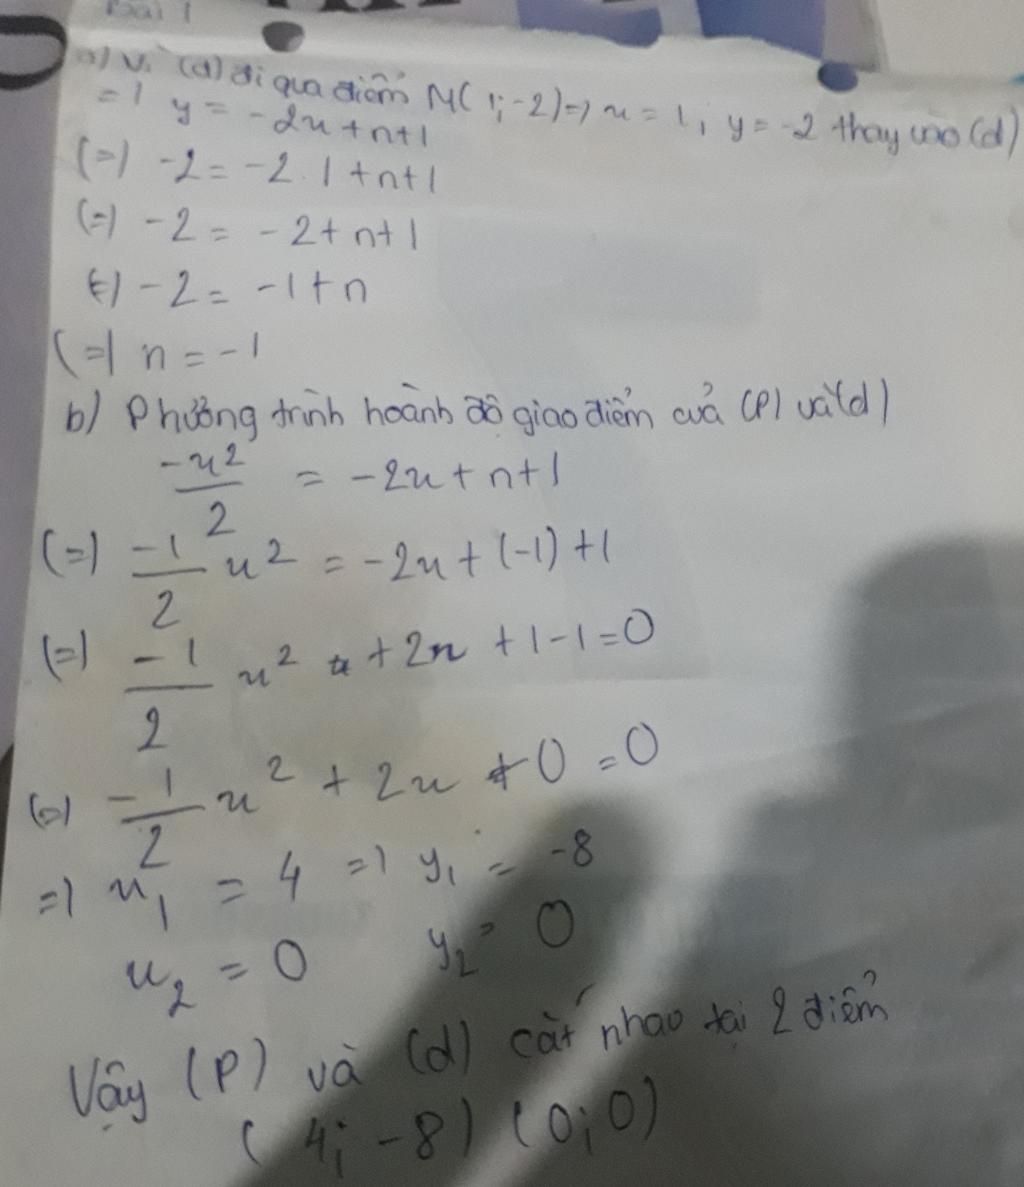 Bài 1
a) Vì (d) đi qua điểm N(1;-2) => x = 1; y = -2 thay vào (d)
=> y = -2x+n+1
(=) -2 = -2.1+n+1
(=) -2 = -2+n+1
(=) -2 = -1+n
(=) n = -1
b) Phường trình hoành độ giao điểm cuả (P) và (d)
-x²/2 = -2x+n+1
(=) -1/2 x² = -2x+(-1)+1
(=) -1/2 x² +2x+1-1=0
(=) -1/2 x² + 2x + 0 = 0
=> x₁ = 4 => y₁ = -8
x₂ = 0 y₂ = 0
Vậy (P) và (d) cắt nhao tại 2 điểm
(4;-8) (0;0)